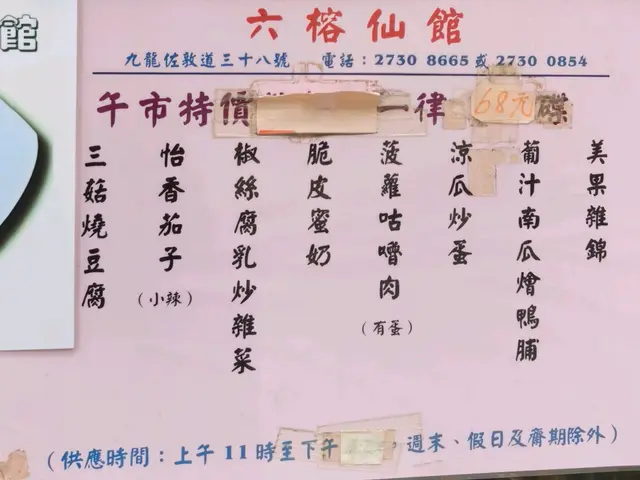 六榕仙館
九龍佐敦道三十八號 電話：2730 8665 或 2730 0854
午市特價 一律 68元 碟
美果雜錦
葡汁南瓜燴鴨脯
涼瓜炒蛋
菠蘿咕嚕肉
（有蛋）
脆皮蜜奶
椒絲腐乳炒雜菜
怡香茄子
（小辣）
三菇燒豆腐
（供應時間：上午11時至下午 ，週末、假日及齋期除外）
館